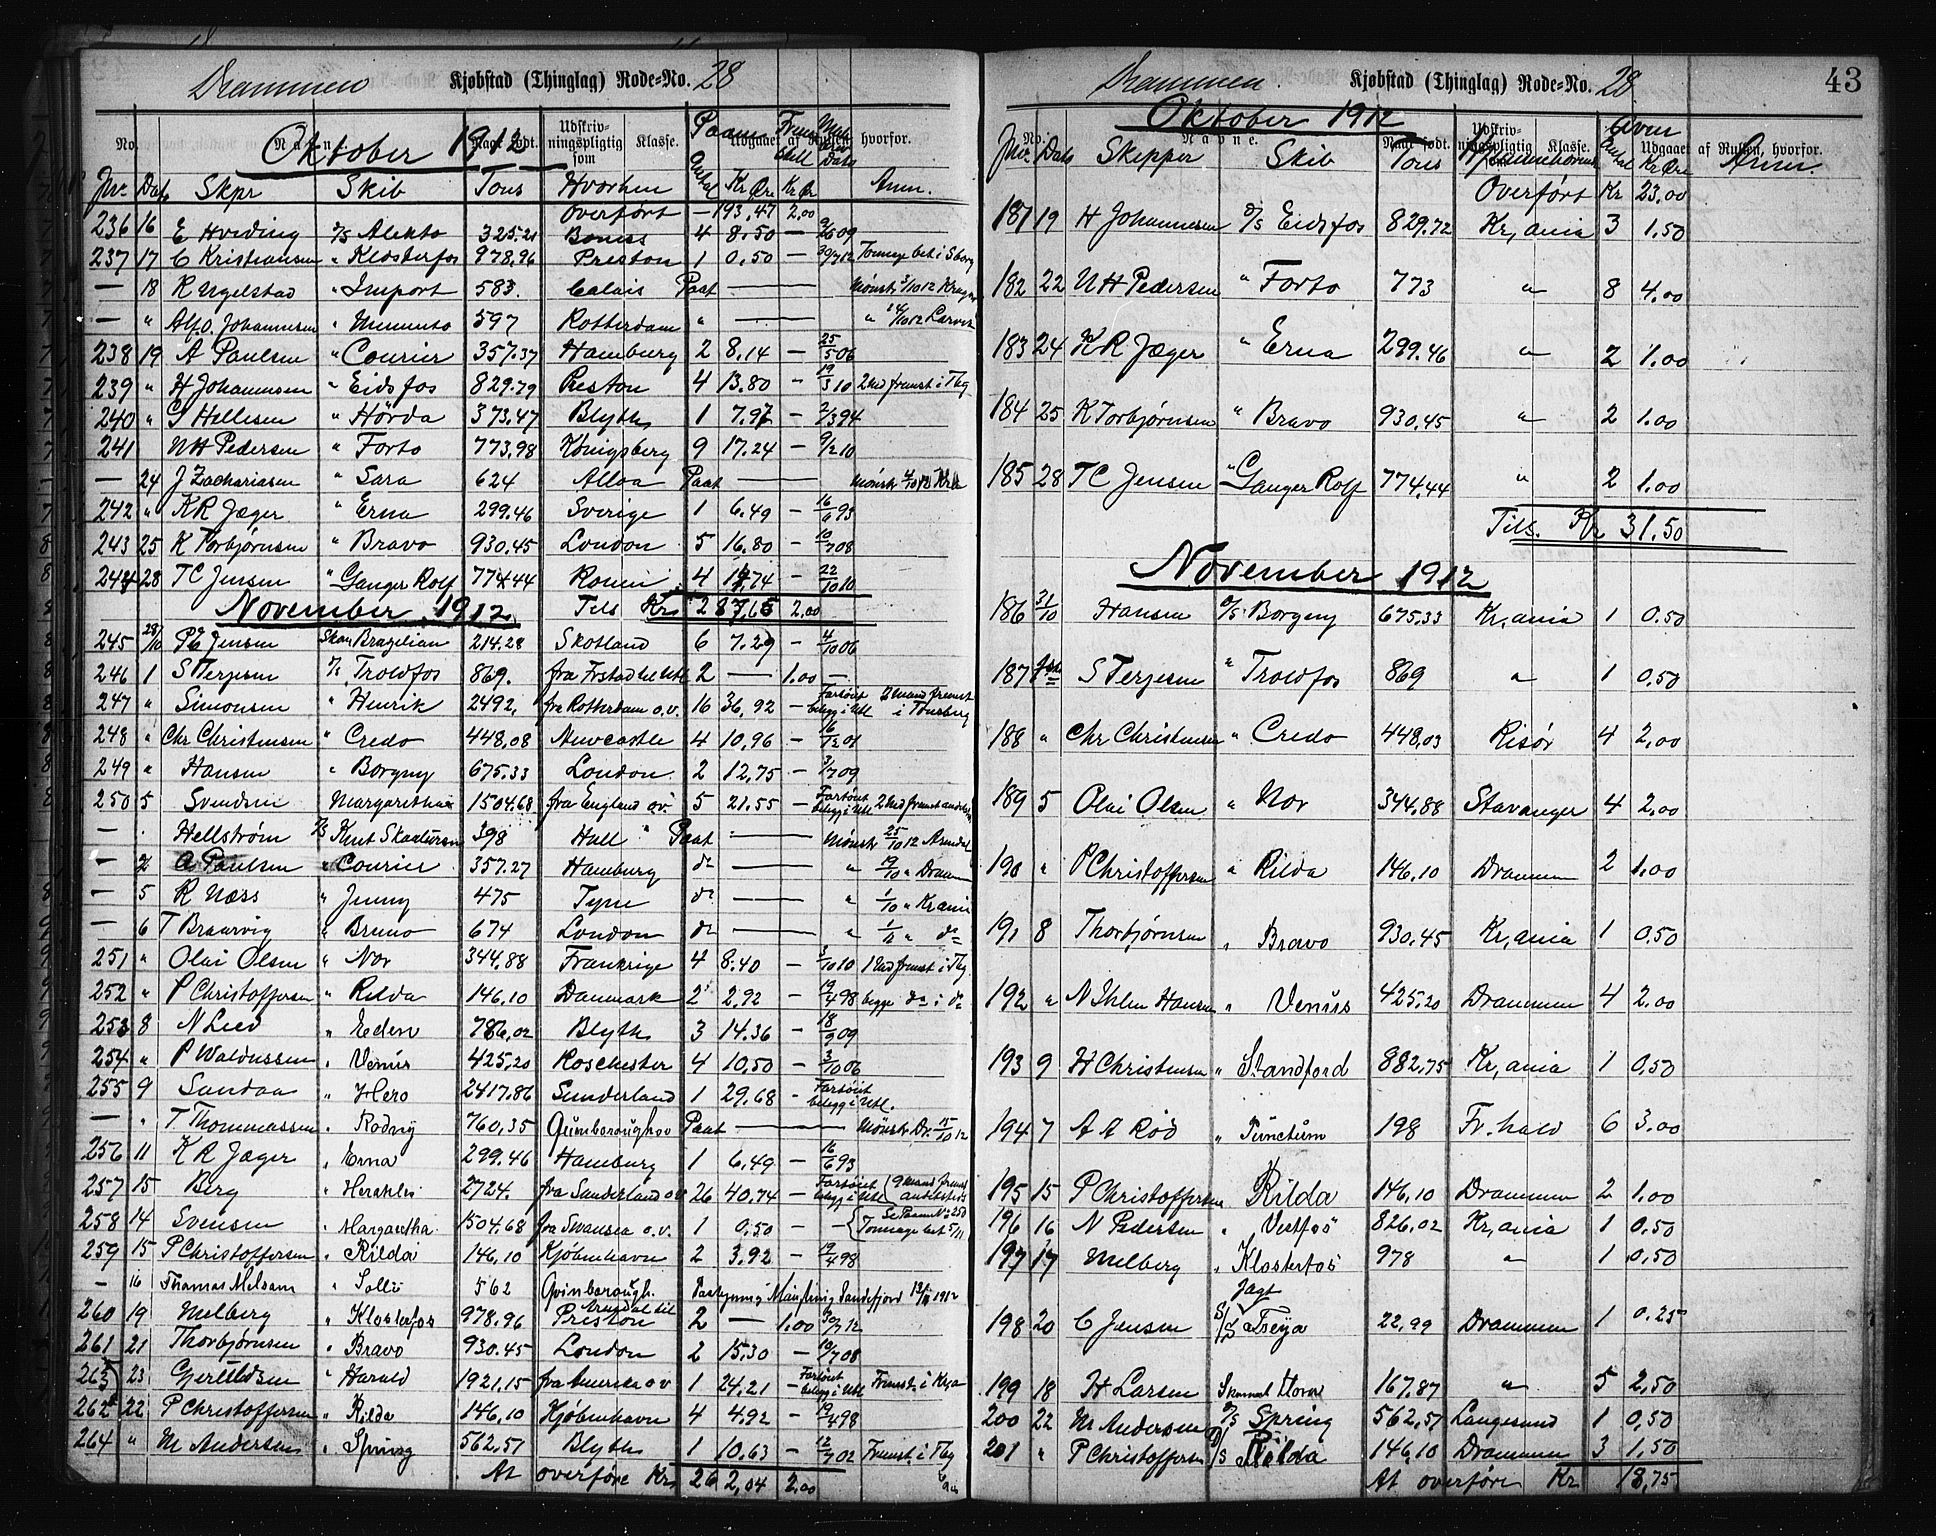 Drammen Kjøbstad (Thinglag) Rode-No. 28
No. Navn. Naar født. Udskrivningspligtig som Klasse. Udgaaet af Rullen, hvorfor.
Oktober 1912
Jnr. Dato Skpr Skib Tons Hvorhen Antal Kr Øre Kr Ør Anm.
Overført — 193,47 2,00
236 16 E Hviding D/S Alekto 325.21 4 8,50 —
237 17 C Kristiansen " Klosterfos 978,96 Preston 1 0,50 — 30/7 12 Tonnage bet i Sborg
— 18 R Ugelstad " Import 583. Calais Paat — Mønstr 3/10 12 Kragerø
— " Alf O. Johannesen " Memento 597 Rotterdam " — " 14/10 12 Larvik
238 19 A Paulsen " Courier 357.37 Hamburg 2 8,14 — 25/5 06
239 " H Johannesen " Eidsfos 829.79 Preston 4 13.80 — 19/3 10 2 Md fremst i Tbg
240 " G Hellesen " Hörda 373,47 Blyth 1 7,97 — 2/3 94
241 NH Pedersen " Forto 773,98 Königsberg 9 17.24 — 9/2 10
— 24 J Zachariasen " Sara 624 Alloa Paat — Mønstr 4/10 12 Kra
242 " KR Jæger " Erna 299.46 Sverige 1 6,49 — 16/6 93
243 25 K Torbjørnsen " Bravo 930,45 London 5 16,80 — 10/7 08
244 28 TC Jensen " Ganger Rolf 774.44 Rouen 4 14,74 — 22/10 10
November 1912 Tils Kr 287,65 2,00
245 28/10 PC Jensen Skon Brazilian 214.28 Skotland 6 7.29 — 4/10 06
246 1 S Terjesen D/S Troldfos 869. fra Frstad til Utl 2 — 1.00 —
247 " Simonsen " Henrik 2492, fra Rotterdam o.v. 16 36,92 — Fartöiet belagt i Utl 2 mand fremst i Tønsberg
248 " Chr Christensen " Credo 448,08 Newcastle 4 10,96 — 16/12 01
249 " Hansen " Borgny 675.33 London 2 12,75 — 3/7 09
250 5 Svendsen Margarethia 1504.68 fra England o.v. 5 21.55 — Fartöiet belagt i Utl 2 Md fremst andetsteds
— . Hellstrøm D/S Knut Skaaluren 398 Hull Paat — Mønstr 25/10 12 Arendal
— 2 A Paulsen " Courier 357.27 Hamburg do — " 19/10 " Dramm
— 5 R Næss " Jenny 475 Tyne do — " 1/10 " Krania
— 6 T Braarvig " Bruno 674 London do — " do
251 " Olai Olsen " Nor 344.88 Frankrige 4 8.40 — 3/10 10 1 Md fremst i Tbg
252 " P Christoffersen " Rilda 146,10 Danmark 2 2,92 — 19/4 98 begge do i do
253 8 N Lied " Eden 786,02 Blyth 3 14.36 — 18/9 09
254 " P Waldussen " Venus 425,20 Roschester 4 10,50 — 3/10 06
255 9 Sandaa " Hero 2417.86 Sunderland 1 29.68 — Fartöiet belagt i Utl.
— " T Thommassen " Rodny 760,35 Queenboroughov Paat — Mønstr Dr. 15/10 12
256 11 K R Jæger " Erna 299.46 Hamburg 1 6,49 — 16/6 93
257 15 Berg " Herakles 2724. fra Sunderland o v 26 40,74 — Fartöiet belagt i Utl 9 mand fremst andetsteds
258 14 Svensen " Margaretha 1504.68 fra Swansea o.v. 1 0,50 — — Se Paam No 250 Tonnage bet 5/11
259 15 P Christoffersen " Rilda 146,10 Kjøbenhavn 2 3,92 — 19/4 98
— 16 Thomas Melsom " Solli 562 Qvinborough. Paategning Sandefjord 1912
260 19 Melberg " Klosterfos 978,96 Arendal til Preston 2 — 1.00 30/7 12
261 21 Thorbjørnsen " Bravo 930.45 London 2 15,30 — 10/7 08
263 23 Gjertldsen " Harald 1921.15 fra Amerika o v 1 24,21 — Fartöiet belagt i Utl Fremst. i Kria
262 22 P Christoffersen " Rilda 146,10 Kjøbenhavn 4 4,92 — 19/4 98
264 " M Andersen " Spring 562,57 Blyth 1 10,63 — 12/7 02 Fremst. i Tbg
At overføre Kr 262,04 2,00
Drammen Kjøbstad (Thinglag) Rode-No. 28 43
No. Navne. Naar født. Udskrivningspligtig som Klasse. Udgaaet af Rullen, hvorfor.
Oktober 1912
Jnr. Dato Skipper Skib Tons Hjemmehørende Antal Kr Øre Anm.
Overført Kr 23,00
181 19 H Johannesen D/S Eidsfos 829.72 Kr,ania 3 1,50
182 22 NH Pedersen " Forto 773 " 8 4,00
183 24 KR Jæger " Erna 299.46 " 2 1,00
184 25 K Torbjørnsen " Bravo 930.45 " 2 1,00
185 28 TC Jensen " Ganger Rolf 774.44 " 2 1,00
Tils. Kr 31,50
November 1912
186 31/10 Hansen D/S Borgny 675.33 Kr,ania 1 0,50
187 S Terjesen " Troldfos 869 " 1 0,50
188 " Chr Christensen " Credo 448,03 Risør 4 2,00
189 5 Olai Olsen " Nor 344.88 Stavanger 4 2,00
190 " P Christoffersen " Rilda 146,10 Drammen 2 1,00
191 8 Thorbjørnsen " Bravo 930.45 Kr,ania 1 0,50
192 " N Ihlen Hansen " Venus 425.20 Drammen 4 2,00
193 9 H Christensen " Standford 882,75 Kr,ania 1 0,50
194 7 A A Röd " Punctum 198 Fr.hald 6 3,00
195 15 P Christoffersen " Rilda 146,10 Drammen 2 1,00
196 16 N Pedersen " Vestfos 826.02 Kr,ania 1 0,50
197 17 Melberg " Klosterfos 978 " 1 0,50
198 20 C Jensen Jagt S/S Freya 22,99 Drammen 1 0.25
199 18 H Larsen 167.87 " 5 2,50
200 22 M Andersen D/S Spring 562,57 Langesund 1 0,50
201 " P Christoffersen D/S Rilda 146,10 Drammen 3 1,50
At overføre Kr 18,75